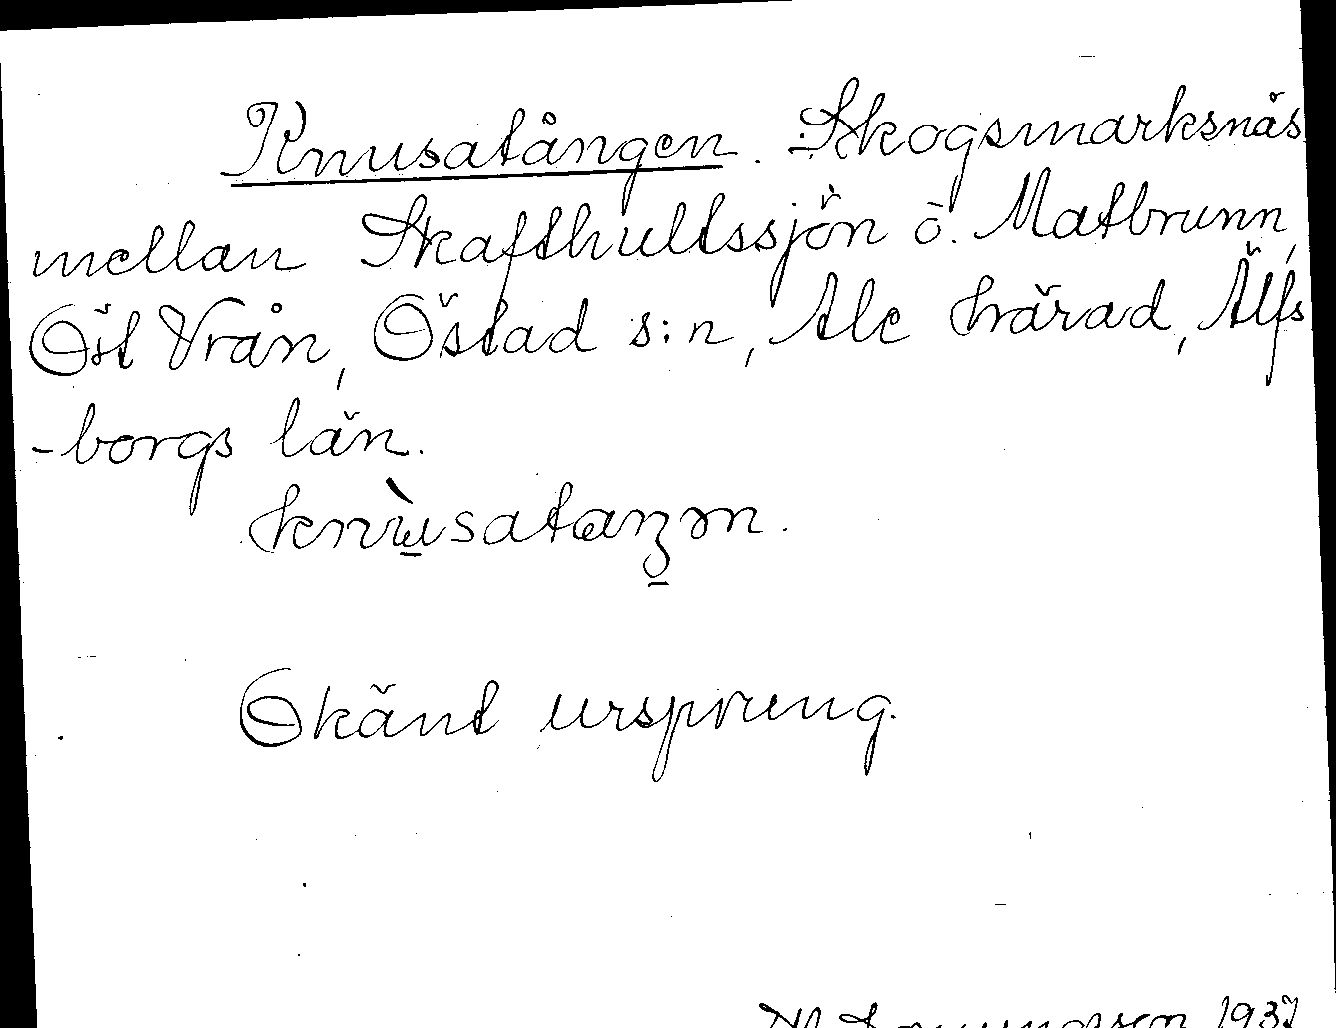 Knusatången. Skogsmarksnäs
mellan Skafthultssjön ö. Matbrunn,
Öst Vrån, Östad s:n, Ale härad, Älfs
-borgs län.
knùsataŋən.
Okänt ursprung.
1937